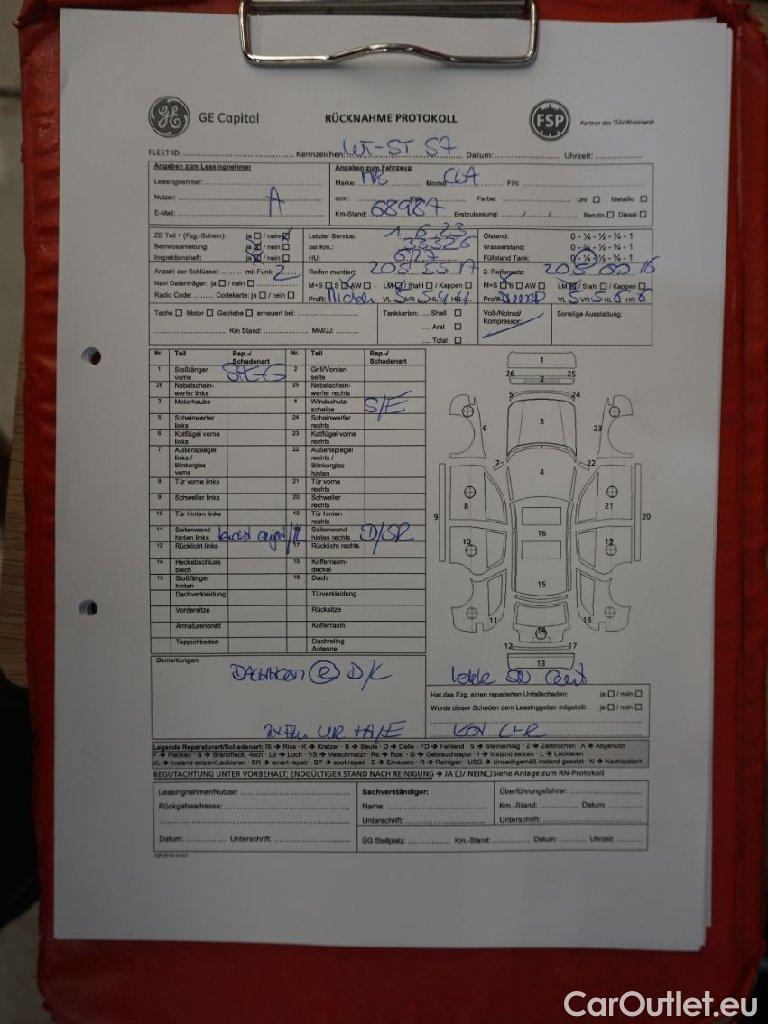 GE Capital RÜCKNAHME PROTOKOLL FSP Partner des TÜV Rheinland
FLEET ID: Kennzeichen: Datum: Uhrzeit:
Angaben zum Leasingnehmer Angaben zum Fahrzeug
Leasingnehmer: Marke: MB Modell: CLA FIN:
Nutzer: A ccm: KW: Farbe: Uni Metallic
E-Mail: Km-Stand: 68987 Erstzulassung: Benzin Diesel
ZB Teil 1 (Fzg.-Schein): ja / nein Letzter Service: 1.6.23 Ölstand: 0 - ¼ - ½ - ¾ - 1
Betriebsanleitung: ja / nein bei Km.: Wasserstand: 0 - ¼ - ½ - ¾ - 1
Inspektionsheft: ja / nein HU: 6/27 Füllstand Tank: 0 - ¼ - ½ - ¾ - 1
Anzahl der Schlüssel: mit Funk: 2 Reifen montiert: 205 55 17 2. Reifensatz: 205 60 16
Navi Datenträger: ja / nein M+S S AW LM / Stahl / Kappen M+S S AW LM / Stahl / Kappen
Radio Code: Codekarte: ja / nein Profil: VL 5 VR 5 HL HR Profil: VL 5 VR 5 HL 6 HR 6
Tacho Motor Getriebe erneuert bei: Tankkarten: Shell Voll-/Notrad/ Sonstige Ausstattung:
Kompressor:
Km Stand: MM/JJ: Aral
Total
Nr. Teil Rep.-/ Schadenart Nr. Teil Rep.-/ Schadenart
1 Stoßfänger vorne 2 Grill/Vorderseite
26 Nebelscheinwerfer links 25 Nebelscheinwerfer rechts
3 Motorhaube 4 Windschutzscheibe S/E
5 Scheinwerfer links 24 Scheinwerfer rechts
6 Kotflügel vorne links 23 Kotflügel vorne rechts
7 Außenspiegel links / Blinkerglas vorne 22 Außenspiegel rechts / Blinkerglas hinten
8 Tür vorne links 21 Tür vorne rechts
9 Schweller links 20 Schweller rechts
10 Tür hinten links 19 Tür hinten rechts
11 Seitenwand hinten links 18 Seitenwand hinten rechts D/SR
12 Rücklicht links 17 Rücklicht rechts
14 Heckabschlussblech 15 Kofferraumdeckel
13 Stoßfänger hinten 16 Dach
Dachverkleidung Türverkleidung
Vordersitze Rücksitze
Armaturenbrett Kofferraum
Teppichboden Dachreling Antenne
1
26 25
2
5 24
6 3 23
7 22
4
8 21
9 20
16
10 19
15
11 18
14
12 17
13
Bemerkungen:
D/K
Hat das Fzg. einen reparierten Unfallschaden: ja / nein
Wurde dieser Schaden dem Leasinggeber mitgeteilt: ja / nein
Legende Reparaturart/Schadenart: RI → Riss · K → Kratzer · B → Beule · D → Delle · FD → Fehlend · S → Steinschlag · Z → Zerbrochen · A → Abgenutzt
F → Flecken · B → Brandfleck, -loch · Lo → Loch · VS → Verschmutzt · Ro → Rost · G → Gebrauchsspur · I → Instand setzen · L → Lackieren
I/L → Instand setzen/Lackieren · SR → smart repair · SP → spot repair · E → Erneuern · R → Reinigen · USG → Unsachgemäß instand gesetzt · N → Nachlackiert
BEGUTACHTUNG UNTER VORBEHALT; ENDGÜLTIGER STAND NACH REINIGUNG → JA / NEIN Siehe Anlage zum RN-Protokoll
Leasingnehmer/Nutzer: Sachverständiger: Überführungsfahrer:
Rückgabeadresse: Name: Km.-Stand: Datum:
Unterschrift: Unterschrift:
Datum: Unterschrift: ÜG Stellplatz: Km.-Stand: Datum: Uhrzeit:
CarOutlet.eu